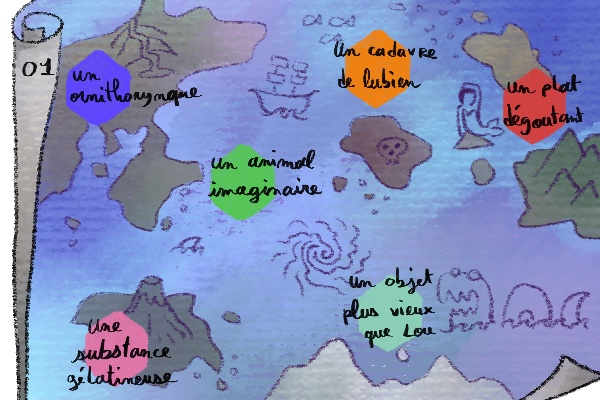 01
un
ornithorynque
un cadavre
de lubien
un plat
dégoutant
un animal
imaginaire
un objet
plus vieux
que Lou
Une
substance
gélatineuse